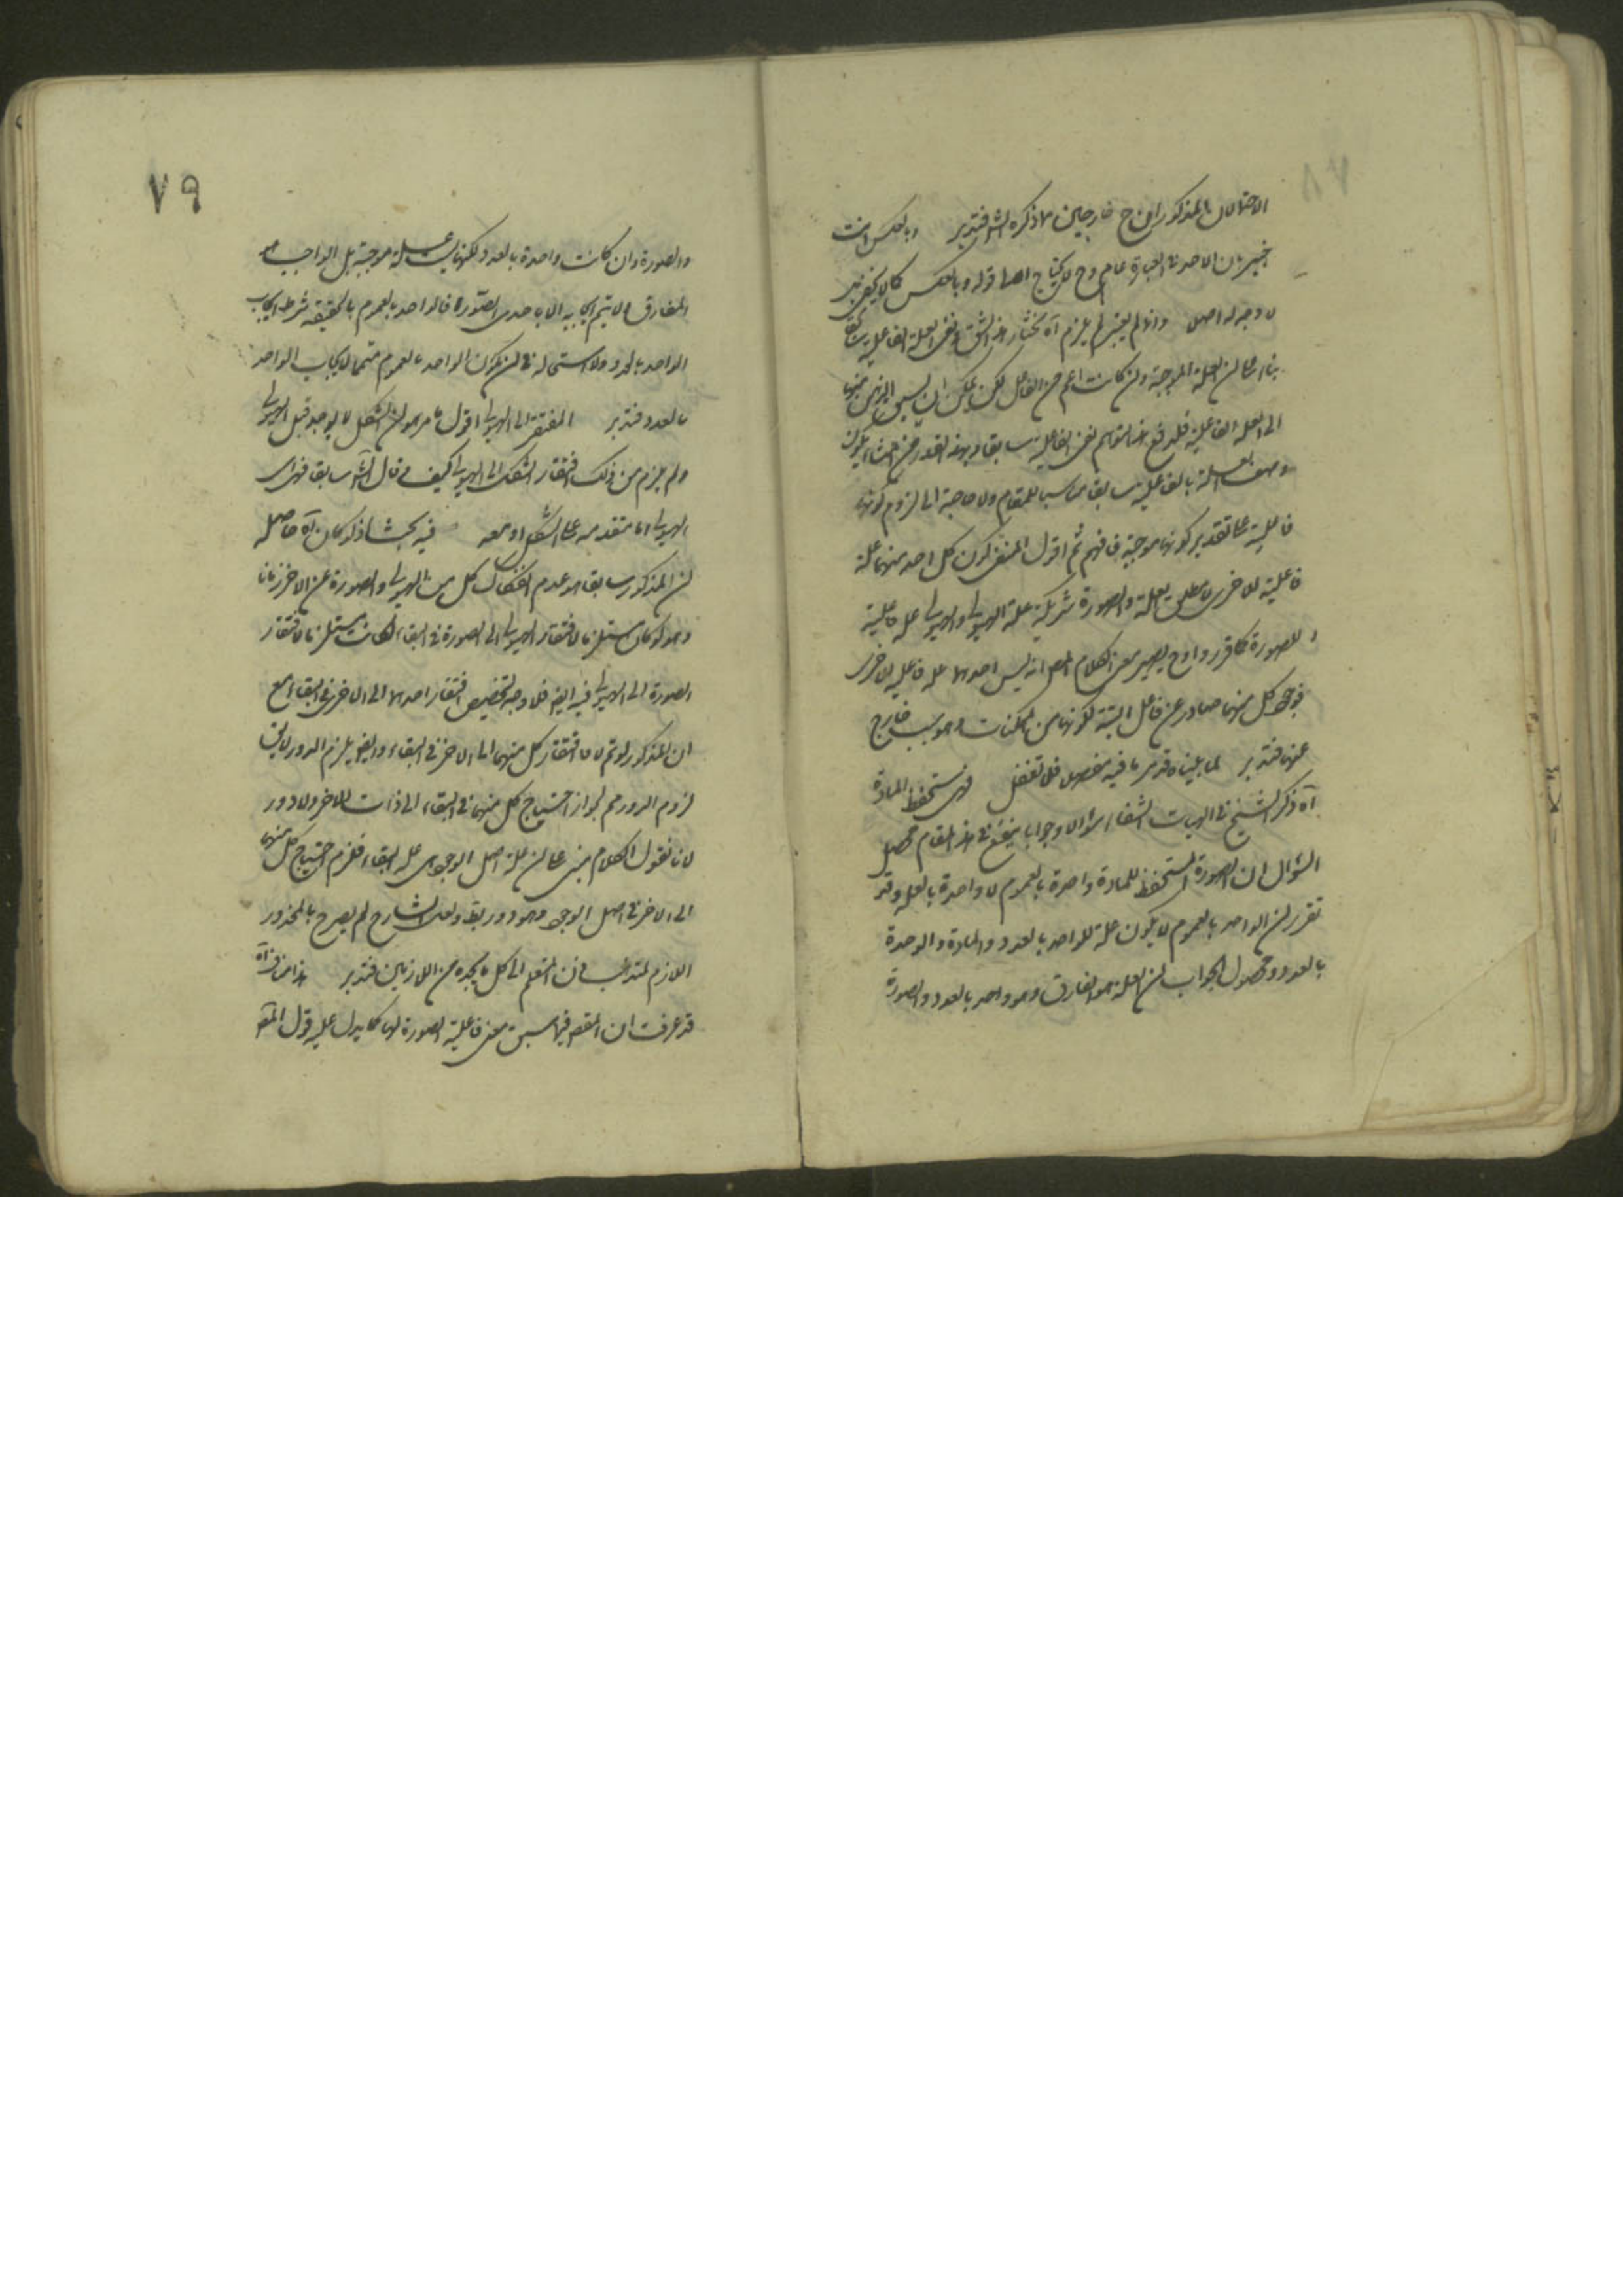 الاحتمالان المذكوران ح خارجين مما ذكره الش فتدبر وبالعكس انت
خبير بان الاحد في العبارة عام وح لا يحتاج الى قوله وبالعكس كما لا يخفى
لا وجه له اصلا وانه لم يلزم آه نختار هذا الشق ونفى العلة الفاعلية
بناء على ان العلة الموجبة وان كانت اعم من الفاعل لكن يمكن ان يسبق الذهن منها
الى العلة الفاعلية فلدفع هذا التوهم نفى الفاعلية سابقا وبهذا القدر يكون
وصف العلة بالفاعلية سابقا مناسبا للمقام ولا حاجة الى لزوم كونها
فاعلية على تقدير كونها موجبة فافهم ثم اقول المنفى كون كل احد منهما علة
فاعلية للاخرى لا مطلق العلة والصورة شريكة علة الهيولى والهيولى علة قابلية
للصورة كما قرروا وح يصير معنى كلام المص انه ليس احدهما علة فاعلية للاخرى
فوجود كل منهما صادر عن فاعل البتة لكونهما من الممكنات وهو سبب خارج
عنهما فتدبر لما بيناه قد مر ما فيه مفصلا فلا تغفل فهى تستحفظ المادة
آه ذكر الشيخ في الهيات الشفاء سؤالا وجوابا ينفع في هذا المقام محصل
السؤال ان الصورة المستحفظة للمادة واحدة بالعموم لا واحدة بالعدد وقد
تقرر ان الواحد بالعموم لا يكون علة للواحد بالعدد والمادة واحدة
بالعدد ومحصول الجواب ان العلة هو المفارق وهو واحد بالعدد والصورة
٧٩
والصورة وان كانت واحدة بالعدد ولكنها ليست علة موجبة بل الواجب هو
المفارق ولا يتم ايجابه الا باحدى الصورة فالواحد بالعموم بالحقيقة شرط ايجاب
الواحد بالعدد ولا استحالة في ان يكون الواحد بالعموم متمما لايجاب الواحد
بالعدد فتدبر المفتقر الى الهيولى اقول ما مر هو ان الشكل لا يوجد قبل الهيولى
ولم يلزم من ذلك افتقار الشكل الى الهيولى كيف وقال الش سابقا فهذا
الهيولى اما متقدمة على الشكل او معه فيه بحث اذ لو كان آه حاصله
ان المذكور سابقا هو عدم انفكاك كل من الهيولى والصورة عن الاخر زمانا
وهو لو كان مستلزما لافتقار الهيولى الى الصورة في البقاء لكان مستلزما لافتقار
الصورة الى الهيولى فيه ايضا فلا وجه لتخصيص افتقار احدهما الى الاخر في البقاء مع
ان المذكور لو تم لافتقار كل منهما الى الاخر في البقاء وايضا يلزم الدور لا يقال
لزوم الدور مم لجواز احتياج كل منهما في البقاء الى ذات الاخر ولا دور
لانا نقول الكلام مبنى على ان علة اصل الوجود هى علة البقاء فلزم احتياج كل منهما
الى الاخر في اصل الوجود وهو دور بط ولعل الشارح لم يصرح بالمحذور
اللازم ليذهب ذهن المتعلم الى كل ما يجده من اللازمين فتدبر هذا مناف آه
قد عرفت ان المقص فيما سبق نفى فاعلية الصورة لها كما يدل عليه قول المص